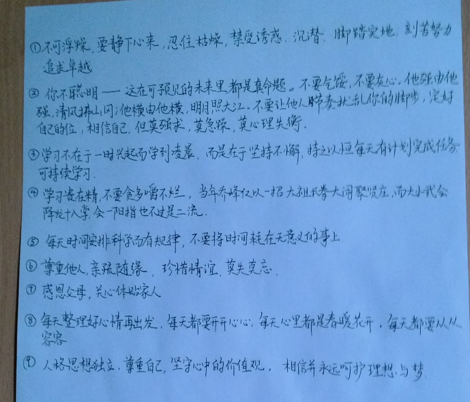 ①不可浮躁，要静下心来，忍住枯燥，禁受诱惑，沉潜，脚踏实地，刻苦努力
追求卓越
②你不聪明——这在可预见的未来里都是真命题。不要气馁，不要灰心。他强由他
强，清风拂山岗；他横由他横，明月照大江。不要让他人节奏扰乱你的脚步，定好
自己的位，相信自己，但莫强求，莫急躁，莫心理失衡。
③学习不在于一时兴起而学到凌晨，而是在于坚持不懈，持之以恒每天有计划完成任务
可持续学习。
④学习贵在精，不要贪多嚼不烂，当年乔峰仅以一招太祖长拳大闹聚贤庄，而大小武会
降龙十八掌会一阳指也不过是二流。
⑤每天时间安排科学而有规律，不要将时间耗在无意义的事上
⑥尊重他人，亲疏随缘，珍惜情谊，莫失莫忘。
⑦感恩父母，关心体贴家人
⑧每天整理好心情再出发，每天都要开开心心，每天心里都是春暖花开，每天都要从从
容容
⑨人格思想独立，尊重自己，坚守心中的价值观，相信并永远呵护理想与梦